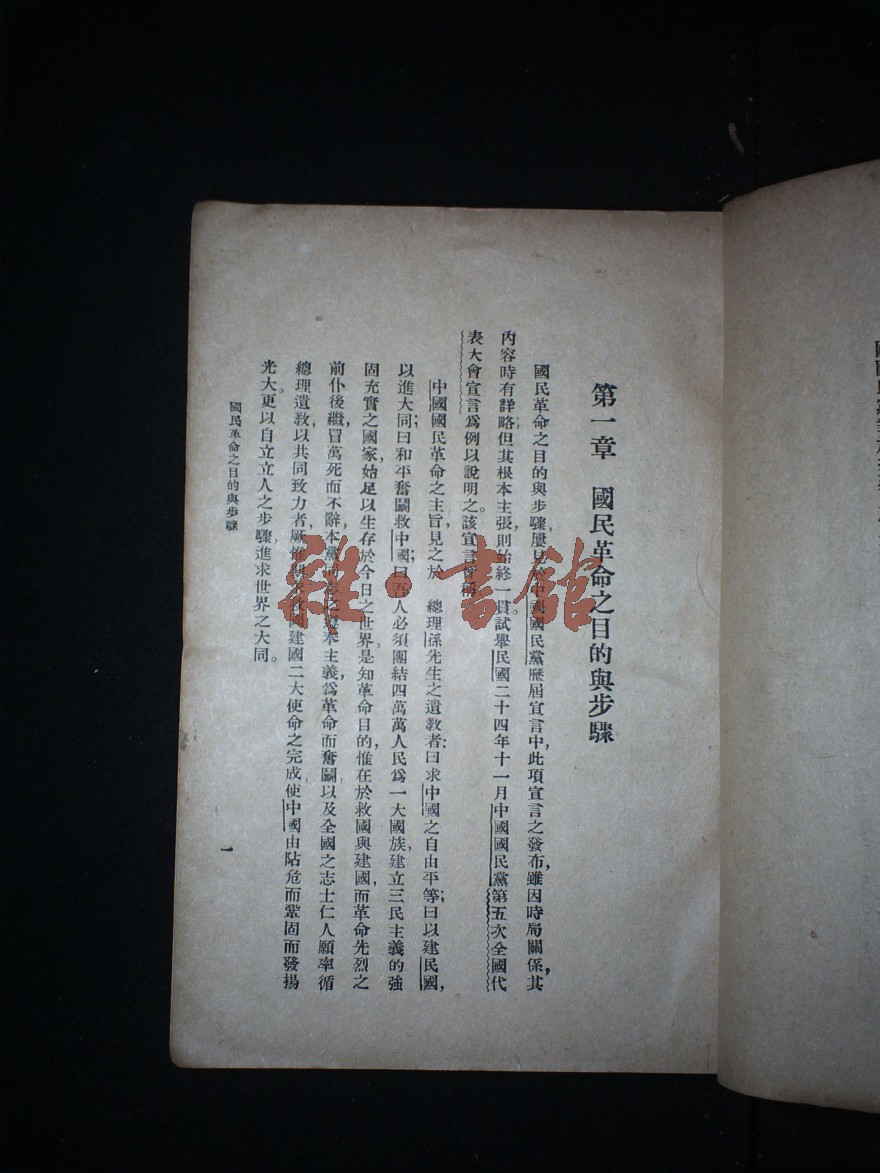 第一章　國民革命之目的與步驟
國民革命之目的與步驟，屢見於中國國民黨歷屆宣言中，此項宣言之發布，雖因時局關係，其
內容時有詳略，但其根本主張，則始終一貫。試舉民國二十四年十一月中國國民黨第五次全國代
表大會宣言爲例以說明之。該宣言稱
中國國民革命之主旨，見之於　總理孫先生之遺教者：曰求中國之自由平等；曰以建民國，
以進大同；曰和平奮鬭救中國；曰吾人必須團結四萬萬人民爲一大國族，建立三民主義的強
固充實之國家，始足以生存於今日之世界。是知革命目的，惟在於救國與建國，而革命先烈之
前仆後繼，冒萬死而不辭，本黨同志之遵奉主義，爲革命而奮鬭，以及全國之志士仁人願率循
總理遺教，以共同致力者，厥惟救國建國二大使命之完成，使中國由阽危而鞏固而發揚
光大。更以自立立人之步驟，進求世界之大同。
國民革命之目的與步驟
一
雜·書館